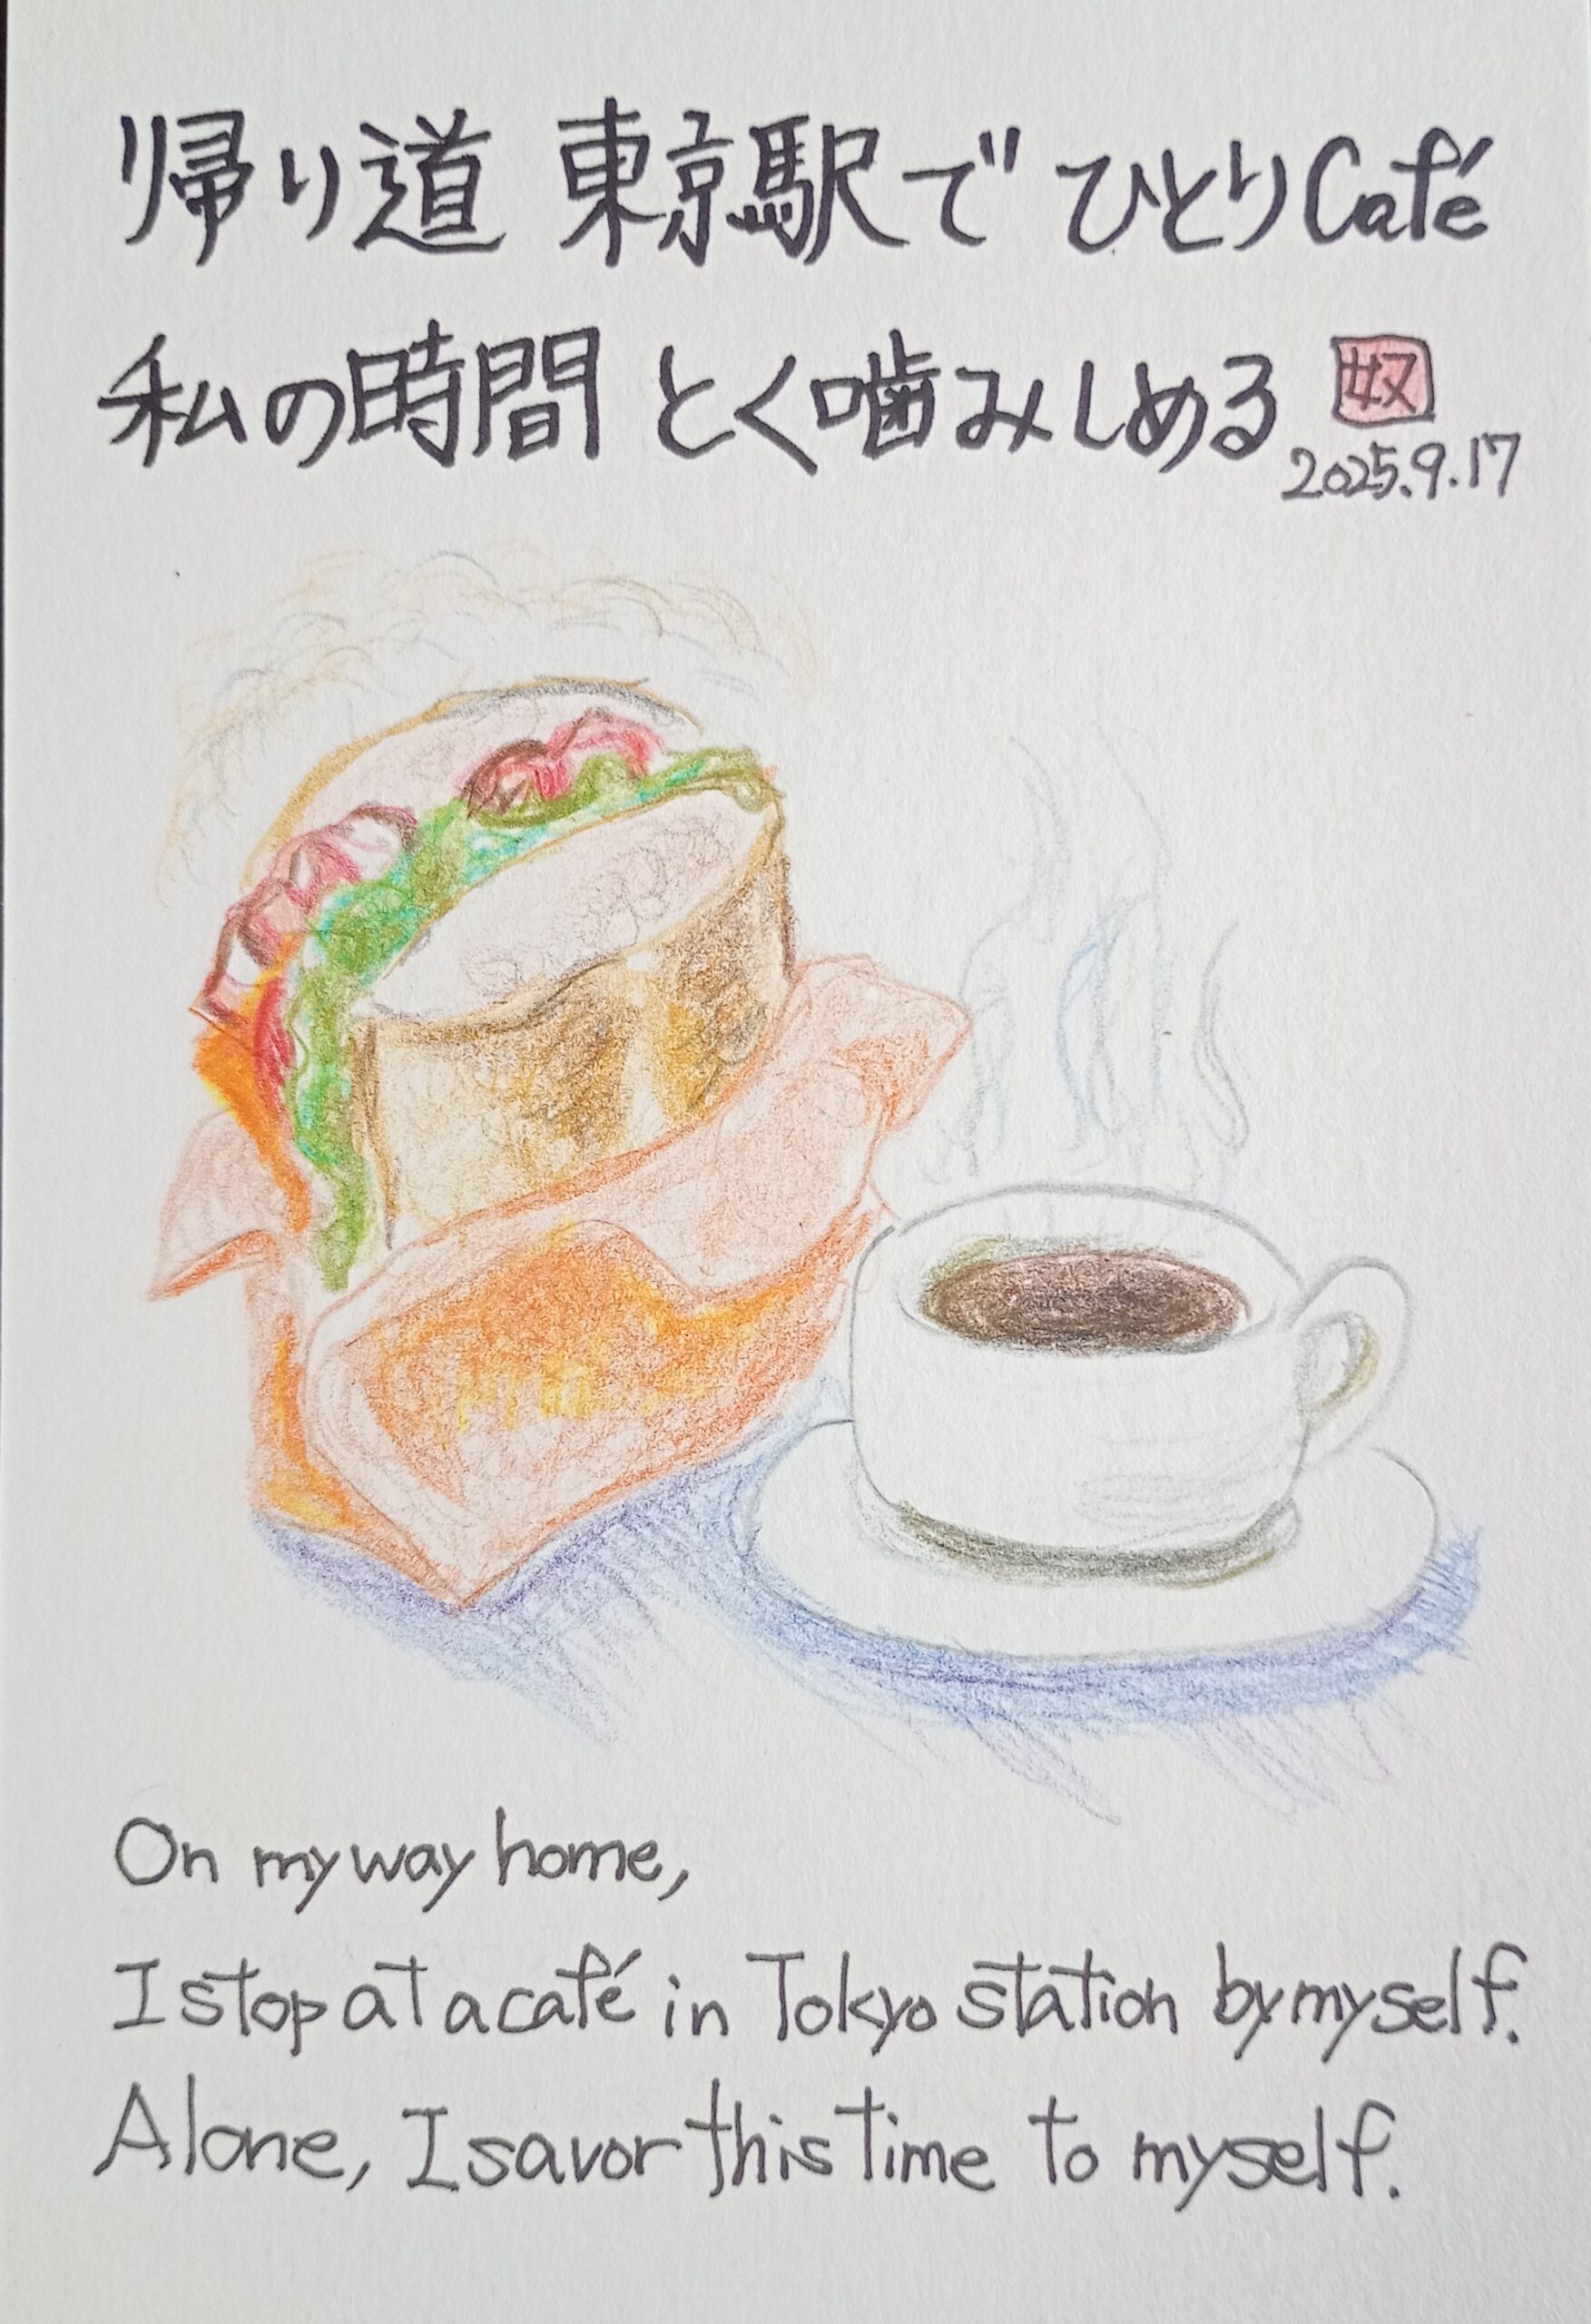 帰り道 東京駅で ひとりCafé
私の時間 とく噛みしめる
奴
2025.9.17
On my way home,
I stop at a café in Tokyo station by myself.
Alone, I savor this time to myself.